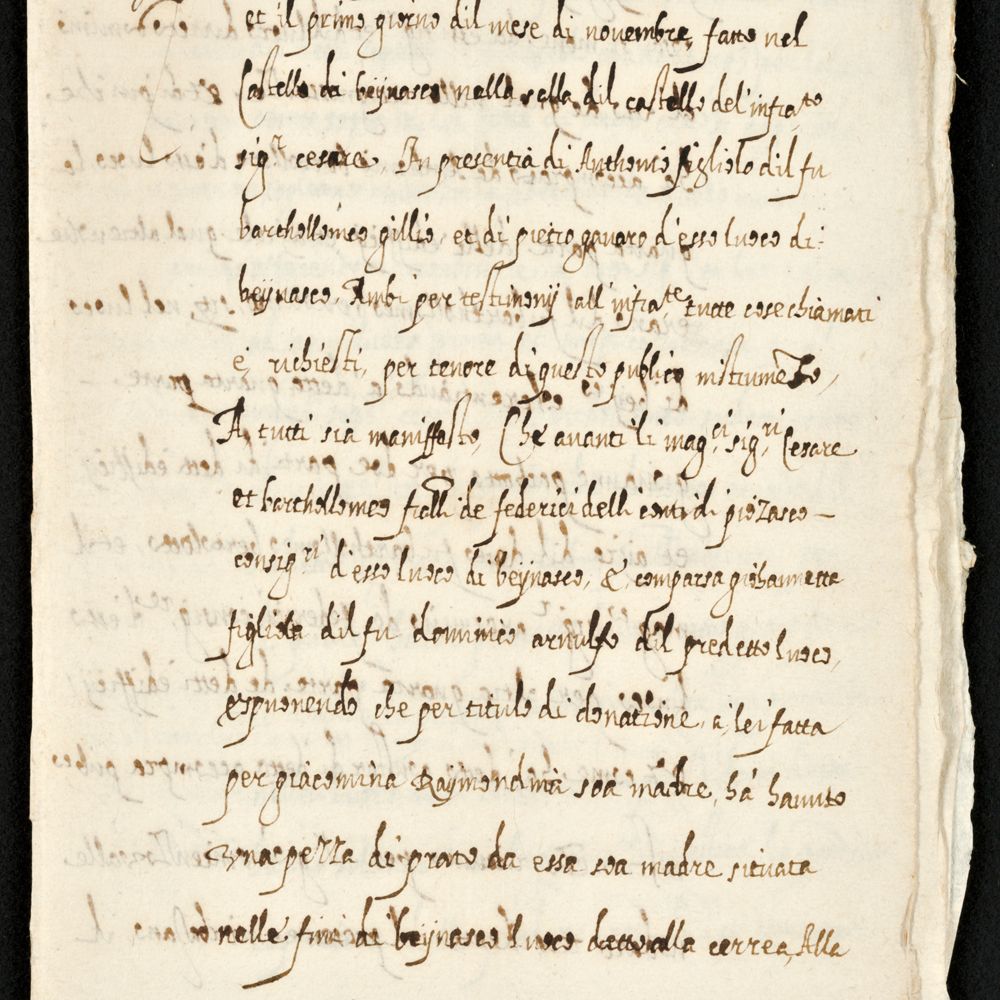 et il primo giorno dil mese di novembre, fatto nel
Castello di beynasco nella sella dil castello del'infra.to
sig.r cesare, In presentia di Anthonio figliolo dil fu
bartholomeo gillio, et di pietro gavaro d'esso luoco di
beynasco, Ambi per testimonij all'infra.te tutte cose chiamati
e, richiesti, per tenore di questo publico instrumēto,
A tutti sia maniffesto, Che avanti li mag.ci sig.ri Cesare
et barthollomeo fr̄alli de federici delli conti di piozasco
consig.ri d'esso luoco di beynasco, é, comparsa giohannetta
figliola dil fu dominico arnulfo dil predetto luoco,
exspuonendo che per titulo di donatione, a, lei fatta
per giacomina Raymondina soa madre, há havuto
una pezza di prato da essa soa madre situata
nelle fini di beynasco luoco detto alla correa, Alla